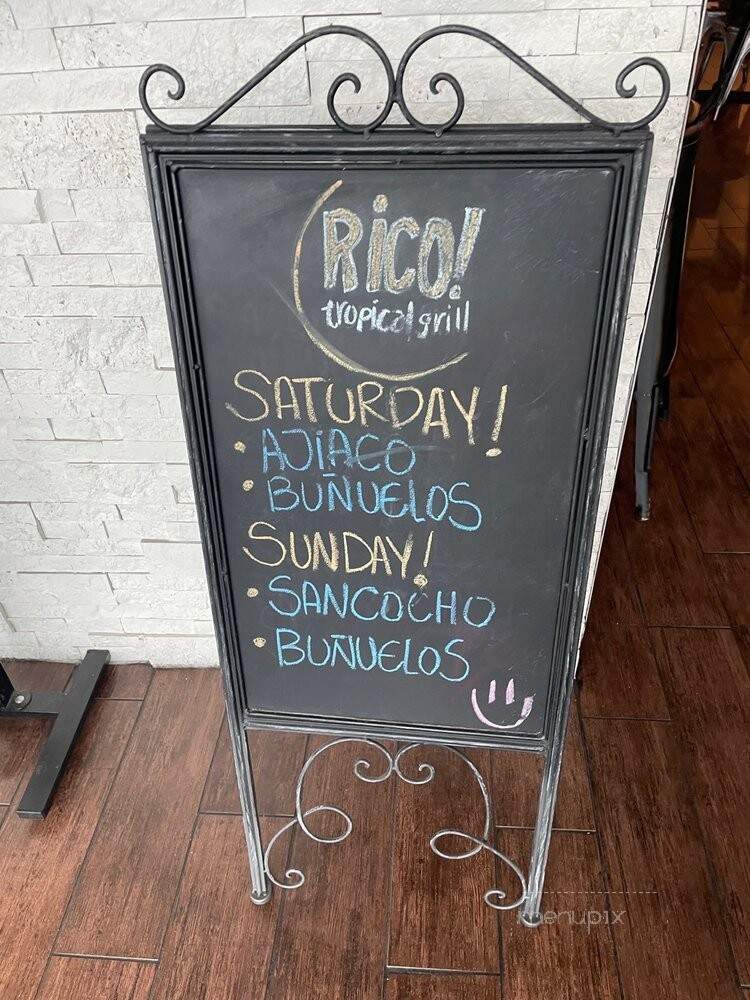 RiCO!
tropical grill
SATURDAY!
• AJÍACO
• BUÑUELOS
SUNDAY!
• SANCOCHO
• BUÑUELOS
menupix